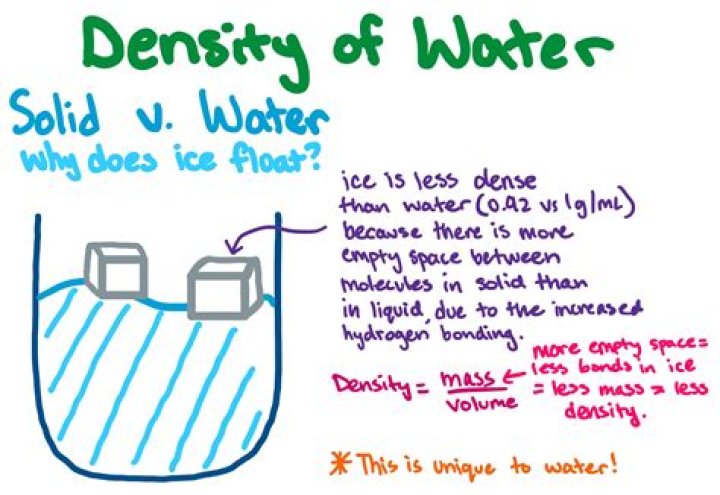 Density of Water
Solid v. Water
why does ice float?
ice is less dense
than water (0.92 vs 1g/mL)
because there is more
empty space between
molecules in solid than
in liquid, due to the increased
hydrogen bonding.
Density = mass
volume
more empty space =
less bonds in ice
= less mass = less
density.
* This is unique to water!